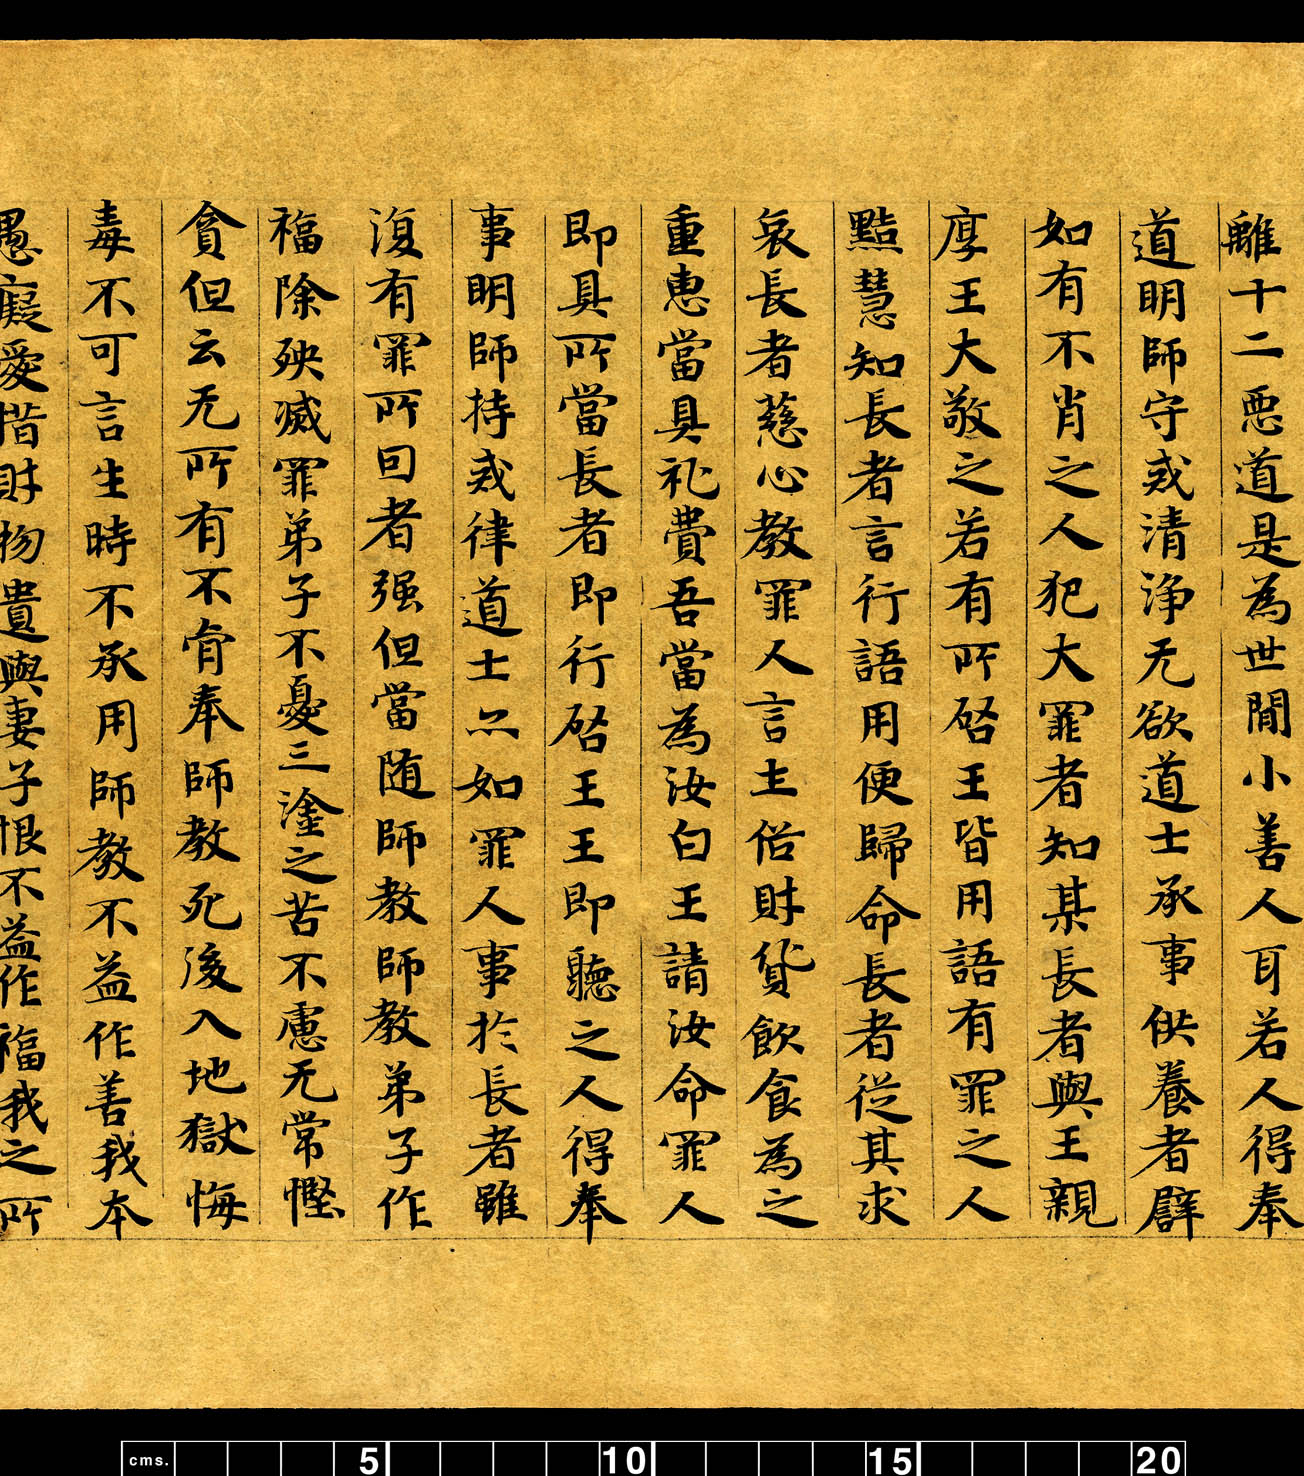 離十二惡道是為世間小善人耳若人得奉
道明師守戒清淨无欲道士承事供養者譬
如有不肖之人犯大罪者知某長者與王親
厚王大敬之若有所啓王皆用語有罪之人
黠慧知長者言行語用便歸命長者從其求
哀長者慈心教罪人言土俗財貨飲食為之
重惠當具礼費吾當為汝白王請汝命罪人
即具所當長者即行啓王王即聽之人得奉
事明師持戒律道士亦如罪人事於長者雖
復有罪所回者强但當随師教師教弟子作
福除殃滅罪弟子不憂三塗之苦不慮无常慳
貪但云无所有不肯奉師教死後入地獄悔
毒不可言生時不承用師教不益作善我本
愚癡愛惜財物貴與妻子恨不益作福我之所
cms. 5 10 15 20